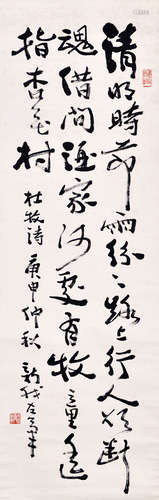 清明時節雨紛々路上行人欲斷
魂借問酒家何處有牧童遙
指杏花村
杜牧詩 庚申仲秋 新我左筆